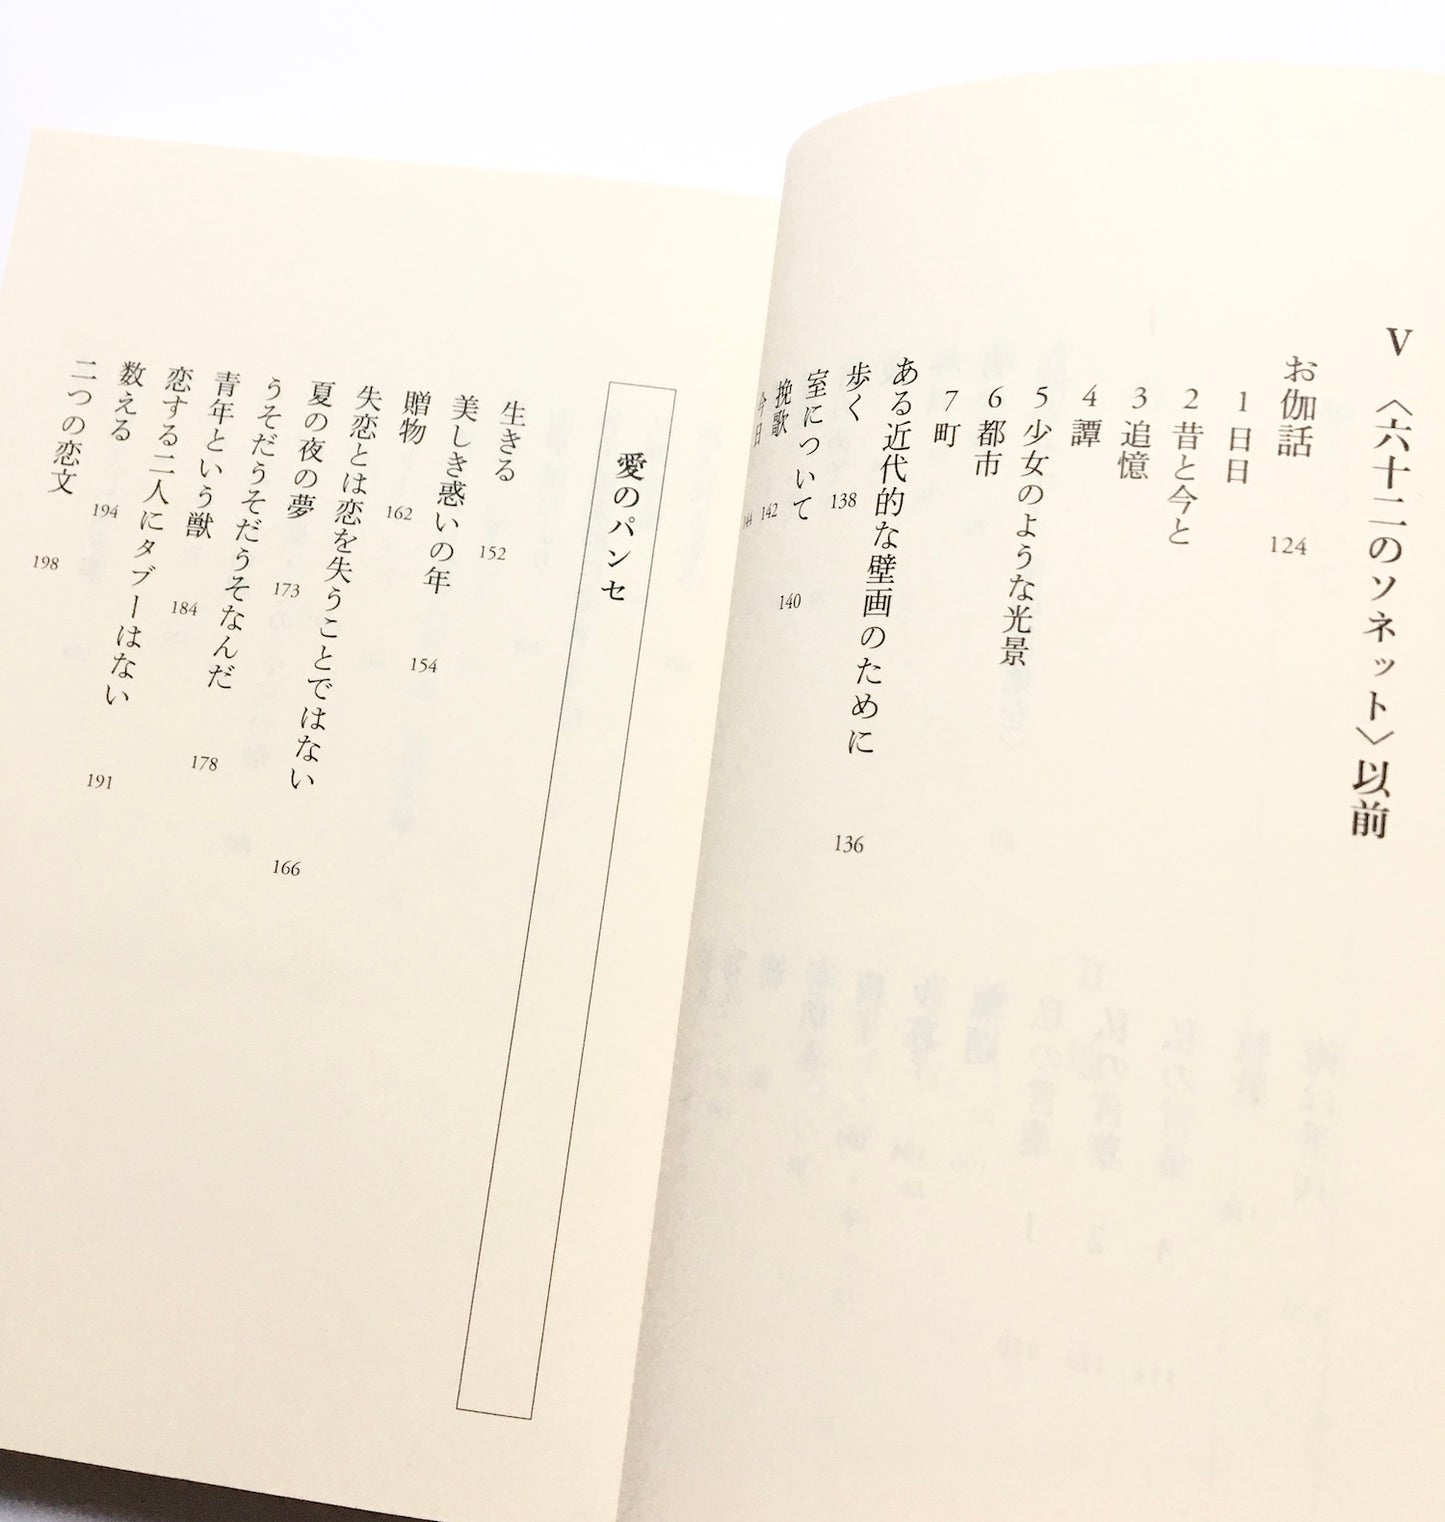 V 〈六十二のソネット〉以前
お伽話 124
1 日日
2 昔と今と
3 追憶
4 譚
5 少女のような光景
6 都市
7 町
ある近代的な壁画のために 136
歩く 138
室について 140
挽歌 142
今日 144
愛のパンセ
生きる 152
美しき惑いの年 154
贈物 162
失恋とは恋を失うことではない 166
夏の夜の夢 173
うそだうそだうそなんだ 178
青年という獣 184
恋する二人にタブーはない 191
数える 194
二つの恋文 198